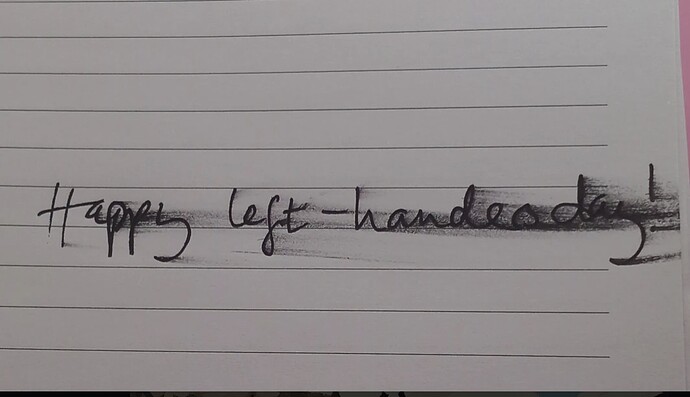 Happy left-handers day!